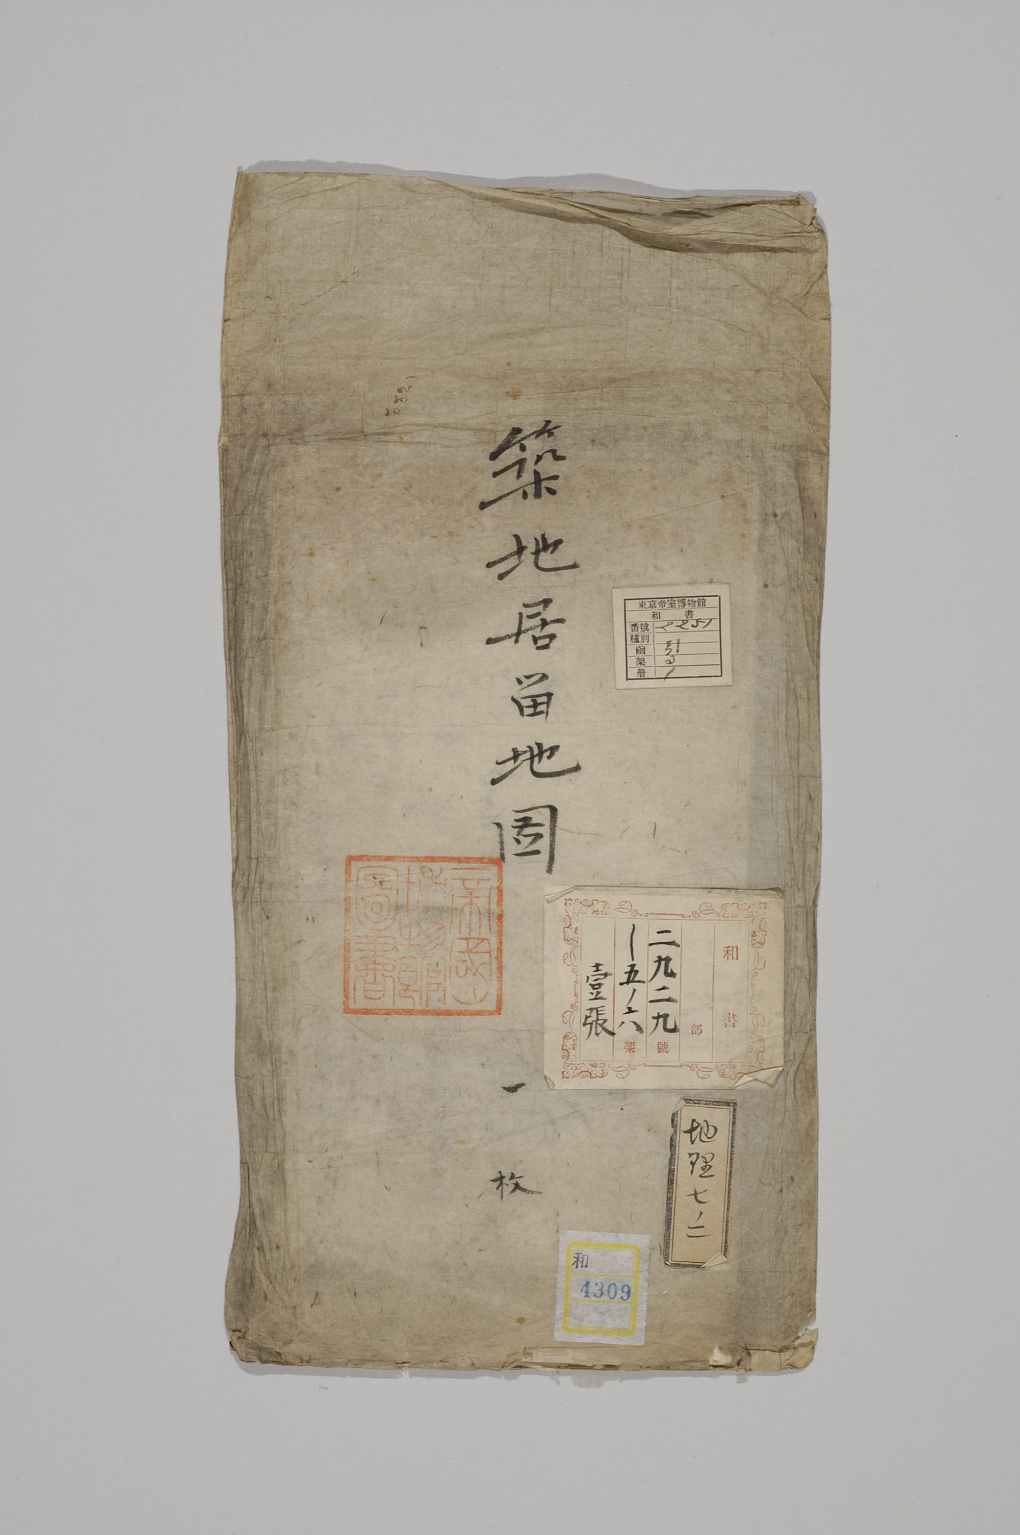 築地居留地圖
一枚
東京帝室博物館
和書
番號 2251
種別
函 31
架
冊 1
和書
部
二九二九號
五ノ六架
壹張
地理七ノ二
帝室博物館圖書
和
4309